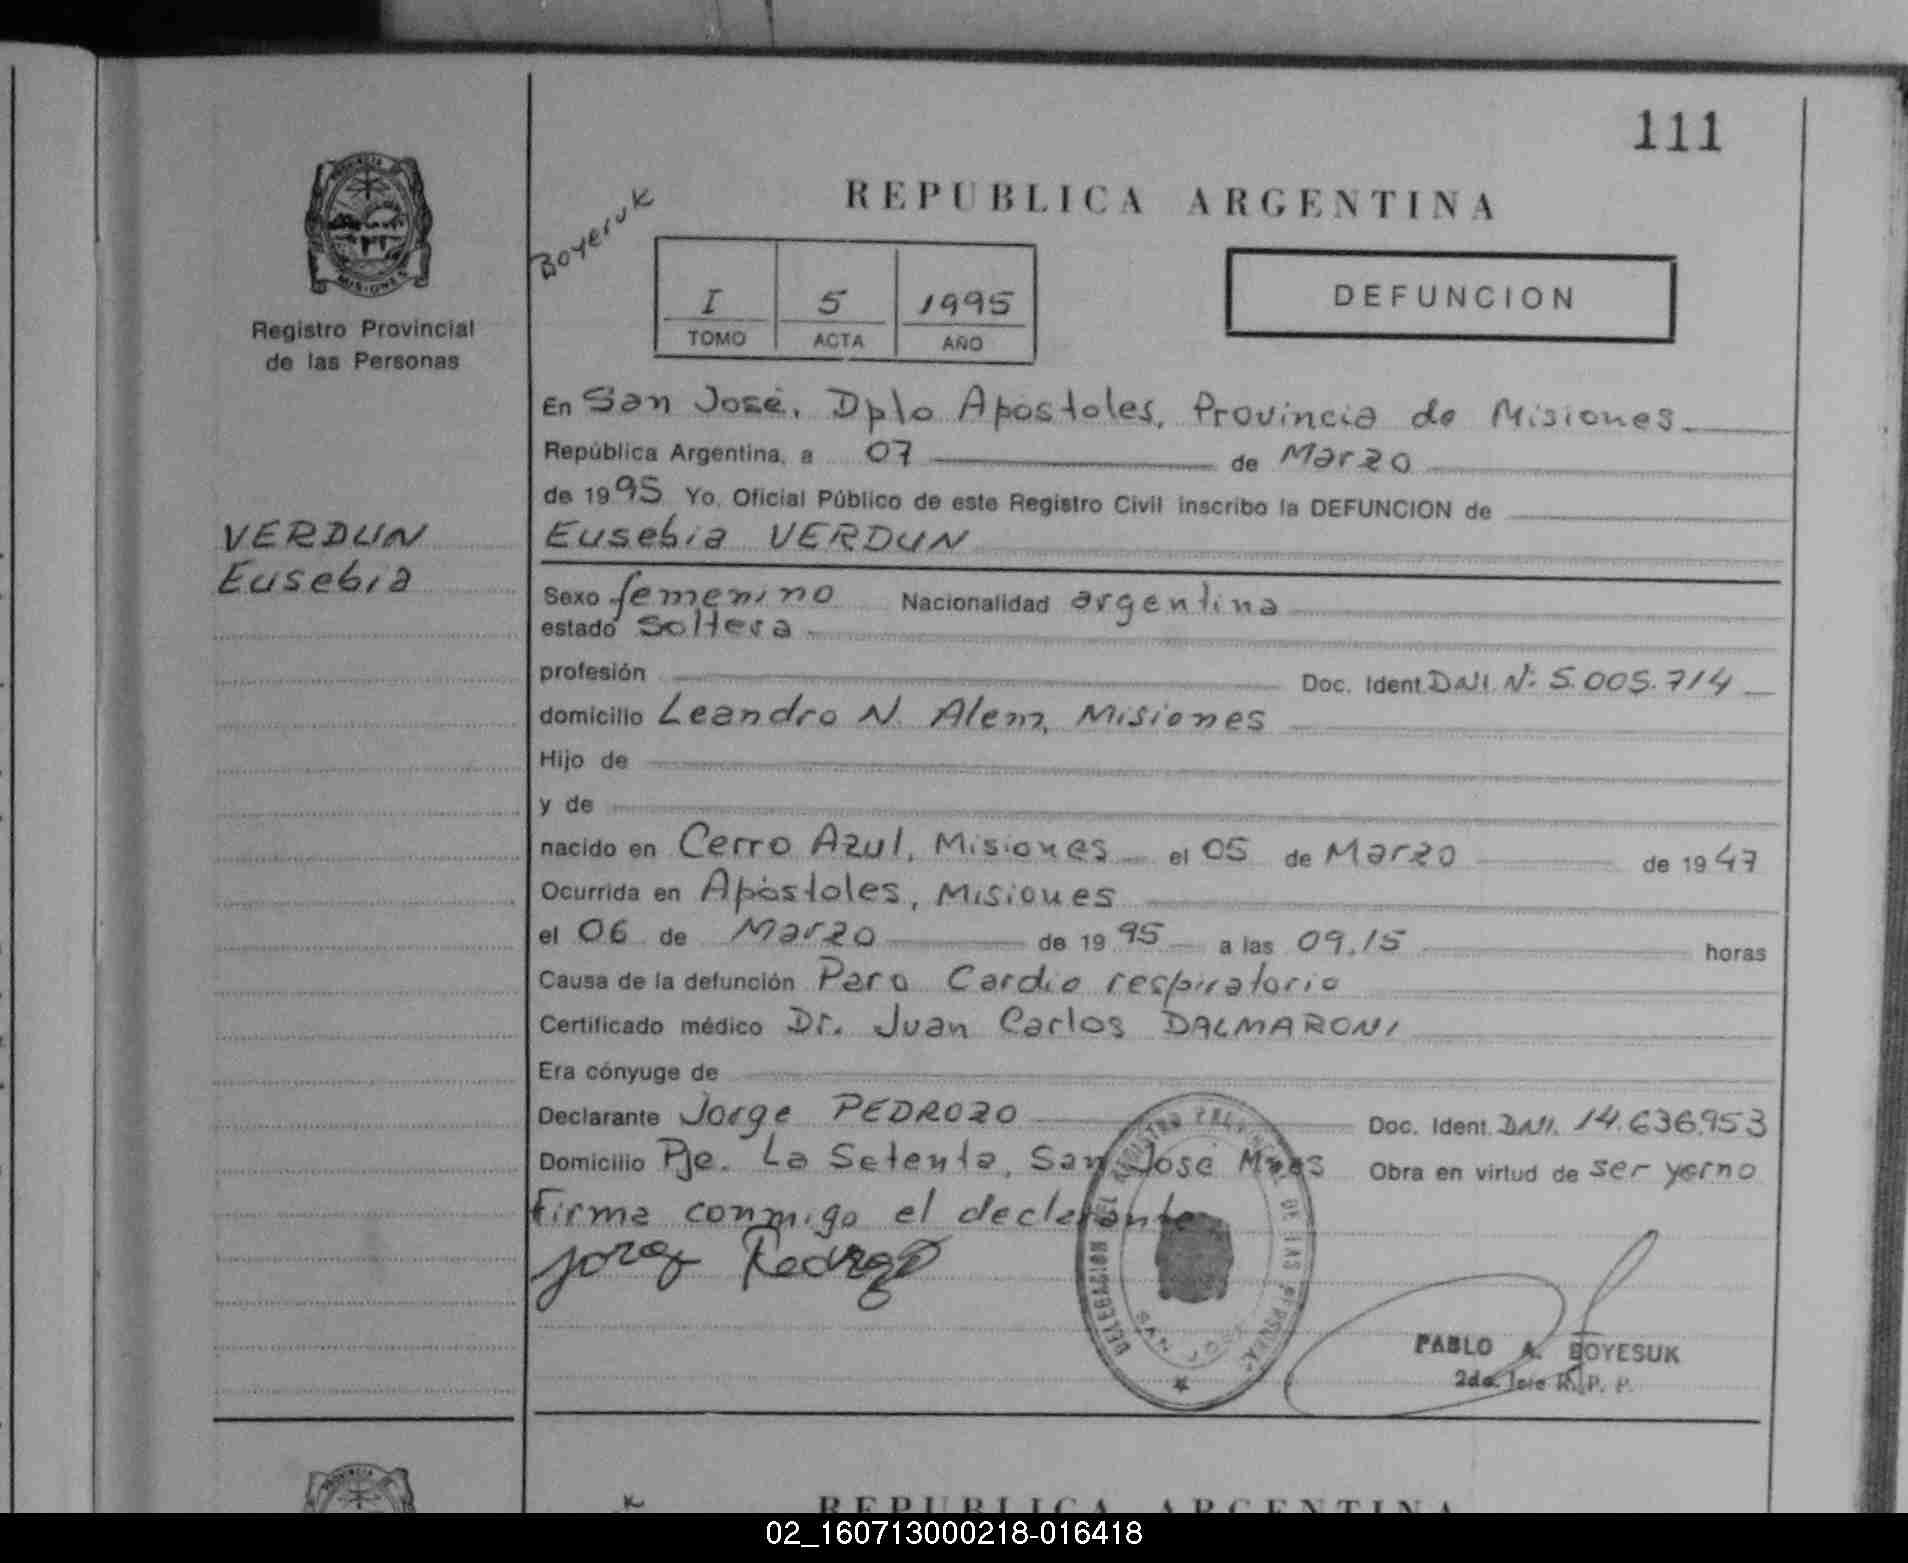 111
REPUBLICA ARGENTINA
PROVINCIA DE
MISIONES
Registro Provincial
de las Personas
I 5 1995
TOMO ACTA AÑO
DEFUNCION
En San José, Dpto Apóstoles, Provincia de Misiones
República Argentina, a 07 de Marzo
de 1995 Yo, Oficial Público de este Registro Civil inscribo la DEFUNCION de
VERDUN
Eusebia
Eusebia VERDUN
Sexo femenino Nacionalidad argentina
estado soltera
profesión Doc. Ident. DNI. Nº 5.005.714
domicilio Leandro N. Alem, Misiones
Hijo de
y de
nacido en Cerro Azul, Misiones el 05 de Marzo de 1947
Ocurrida en Apóstoles, Misiones
el 06 de Marzo de 1995 a las 09.15 horas
Causa de la defunción Paro Cardio respiratorio
Certificado médico Dr. Juan Carlos DALMARONI
Era cónyuge de
Declarante Jorge PEDROZO Doc. Ident. DNI. 14.636.953
Domicilio Pje. La Setenta, San José Mnes Obra en virtud de ser yerno
Firma conmigo el declarante
DELEGACION DEL REGISTRO PROVINCIAL DE LAS PERSONAS
SAN JOSE
PABLO A. BOYESUK
2do. Jefe R. P. P.
REPUBLICA ARGENTINA
02_160713000218-016418